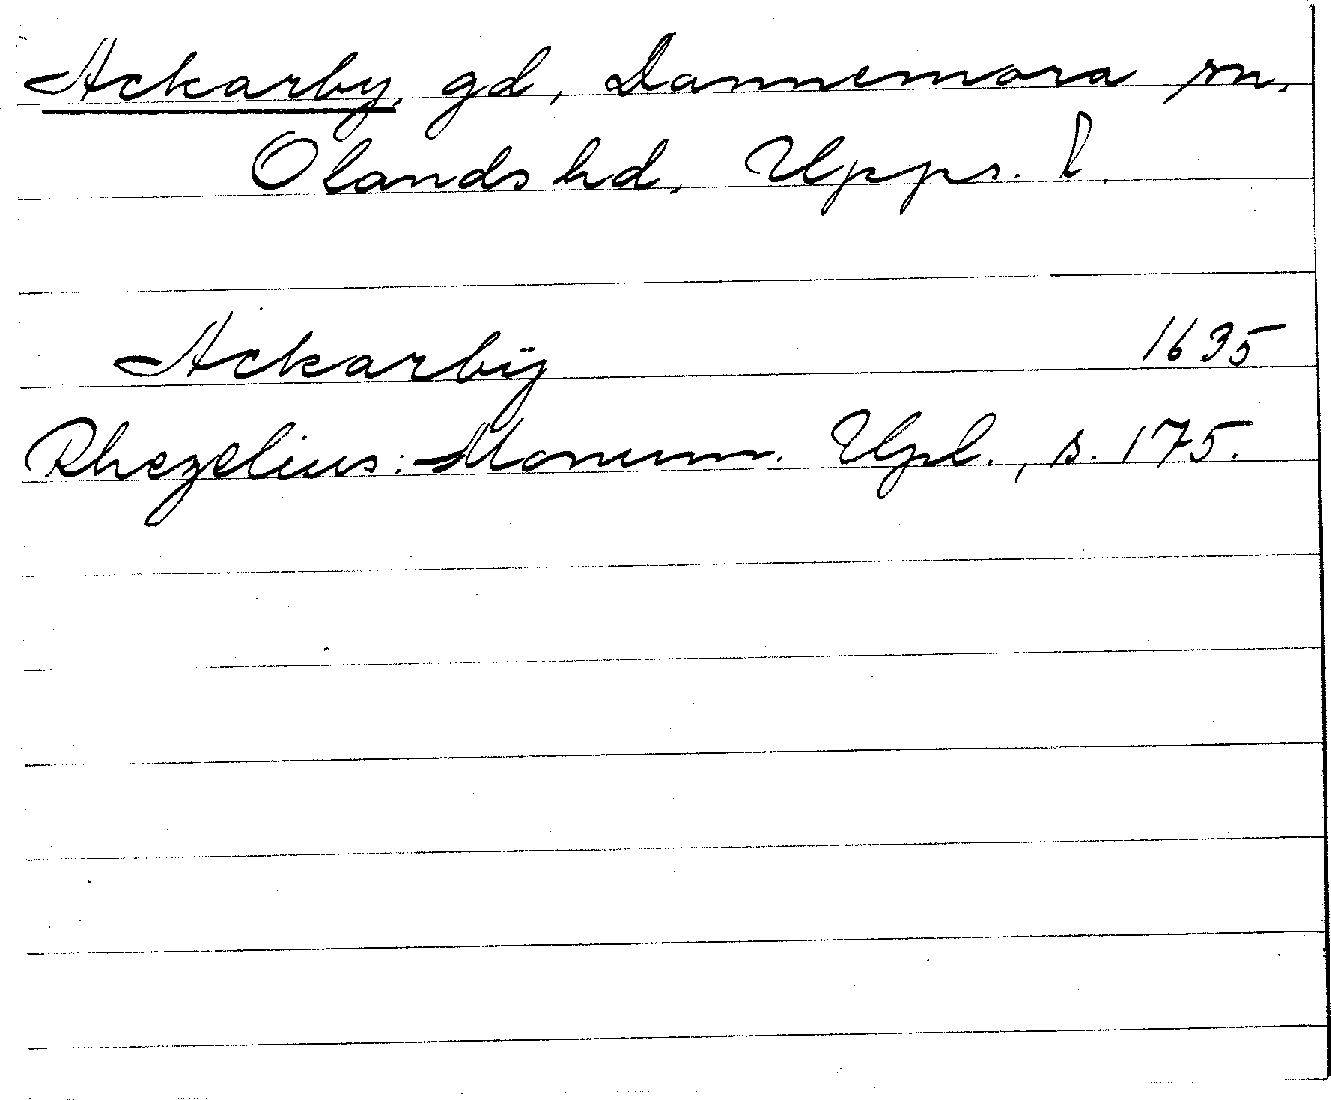 Ackarby, gd, Dannemora sn,
Olands hd, Upps. l.
Ackarbÿ 1635
Rhezelius: Monum. Upl., s. 175.